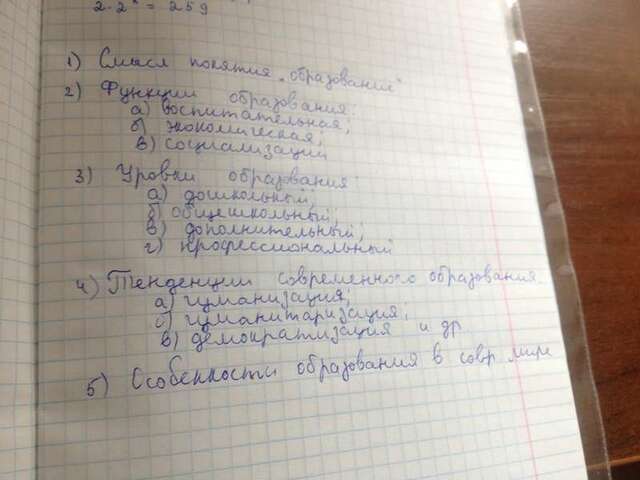 1) Смысл понятия „образование"
2) Функции образования:
а) воспитательная;
б) экономическая;
в) социализации
3) Уровни образования
а) дошкольный;
б) общешкольный;
в) дополнительный;
г) профессиональный
4) Тенденции современного образования
а) гуманизация;
б) гуманитаризация;
в) демократизация и др
5) Особенности образования в совр мире